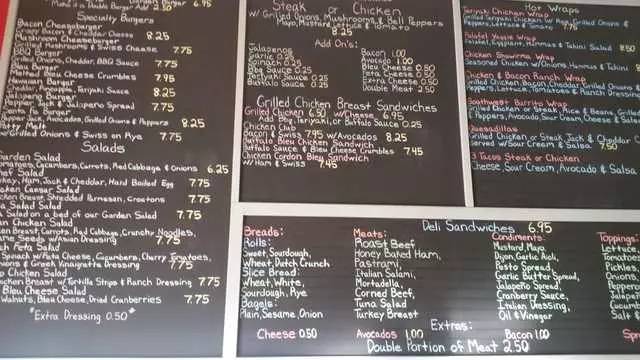 Make it a Double Burger Add 2.50
Specialty Burgers
Bacon Cheeseburger
Crispy Bacon & Cheddar Cheese 8.25
Mushroom Cheeseburger
Grilled Mushrooms & Swiss Cheese 7.75
BBQ Burger
Grilled Onions, Cheddar, BBQ Sauce 7.75
Bleu Burger
Melted Bleu Cheese Crumbles 7.95
Hawaiian Burger
Cheddar, Pineapple, Teriyaki Sauce 8.25
Jalapeno Burger
Pepper Jack & Jalapeno Spread 7.75
Santa Fe Burger
Pepper Jack, Avocados, Grilled Onions & Peppers 8.25
Patty Melt
Grilled Onions & Swiss on Rye 7.75
Salads
Garden Salad
Tomatoes, Cucumbers, Carrots, Red Cabbage & Onions 6.25
Chef Salad
Turkey, Ham, Jack & Cheddar, Hard Boiled Egg 7.75
Chicken Caesar Salad
Chicken Breast, Shredded Parmesan, Croutons 7.75
Tuna Salad Salad
Salad on a bed of our Garden Salad 7.75
Asian Chicken Salad
Chicken Breast, Carrots, Red Cabbage, Crunchy Noodles,
Seeds w/Asian Dressing 7.75
Feta Salad
Spinach w/Feta Cheese, Cucumbers, Cherry Tomatoes,
& Greek Vinaigrette Dressing 7.75
Chicken Salad
Chicken Breast w/Tortilla Strips & Ranch Dressing 7.75
Bleu Cheese Salad
Walnuts, Bleu Cheese, Dried Cranberries 7.75
*Extra Dressing 0.50*
Steak or Chicken
w/Grilled Onions, Mushrooms & Bell Peppers
Mayo, Mustard, Lettuce & Tomato
8.25
Add On's:
Jalapenos 0.25
Garlic 0.25
Spinach 0.25
BBQ Sauce 0.25
Teriyaki Sauce 0.25
Buffalo Sauce 0.25
Bacon 1.00
Avocado 1.00
Bleu Cheese 0.50
Feta Cheese 0.50
Extra Cheese 0.50
Double Meat 2.50
Grilled Chicken Breast Sandwiches
Grilled Chicken 6.50 w/Cheese 6.95
Add BBQ, Teriyaki, or Buffalo Sauce 0.25
Chicken Club
Bacon & Swiss 7.95 w/Avocados 8.25
Buffalo Bleu Chicken Sandwich
Buffalo Sauce & Bleu Cheese Crumbles 7.45
Chicken Cordon Bleu Sandwich
w/Ham & Swiss 7.45
Hot Wraps
Teriyaki Chicken Wrap
Grilled Teriyaki Chicken w/ Rice, Grilled Onions &
Peppers, Lettuce & Tomato 7.75
Falafel Veggie Wrap
Falafel, Eggplant, Hummus & Tahini Salad 8.50
Chicken Shawrma Wrap
Seasoned Chicken w/Onions, Hummus & Tahini
Chicken & Bacon Ranch Wrap
Grilled Chicken, Bacon, Cheddar, Grilled Onions &
Peppers, Lettuce, Tomatoes & Ranch Dressing
Southwest Burrito Wrap
Grilled Chicken or Steak, Rice & Beans, Grilled
Peppers, Avocado, Sour Cream, Cheese & Salsa
Quesadillas
Grilled Chicken or Steak, Jack & Cheddar
Served w/Sour Cream & Salsa 7.50
3 Tacos Steak or Chicken
Cheese, Sour Cream, Avocado & Salsa
Deli Sandwiches 6.95
Breads:
Rolls:
Sweet, Sourdough,
Wheat, Dutch Crunch
Slice Bread:
Wheat, White,
Sourdough, Rye
Bagels:
Plain, Sesame, Onion
Meats:
Roast Beef
Honey Baked Ham,
Pastrami,
Italian Salami,
Mortadella,
Corned Beef,
Tuna Salad
Turkey Breast
Condiments:
Mustard, Mayo,
Dijon, Garlic Aioli,
Pesto Spread,
Garlic Butter Spread,
Jalapeño Spread,
Cranberry Sauce,
Italian Dressing,
Oil & Vinegar
Toppings:
Lettuce
Tomatoes
Pickles
Onions
Peppers
Cucumb
Salt
Extras:
Cheese 0.50 Avocados 1.00 Bacon 1.00
Double Portion of Meat 2.50